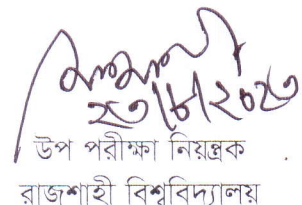 ২৩/৮/২০২৩
উপ পরীক্ষা নিয়ন্ত্রক
রাজশাহী বিশ্ববিদ্যালয়